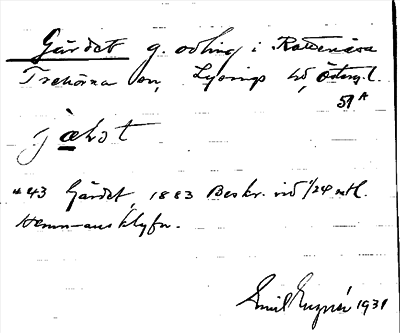 Gärdet g. odling i Rattenäva
Trehörna sn, Lysings hd, Österg. l.
51 A
jæḷət
43 Gärdet, 1883 Beskr. vid 1/24 mtl.
Hemmansklyfn.
Emil Engnér 1931